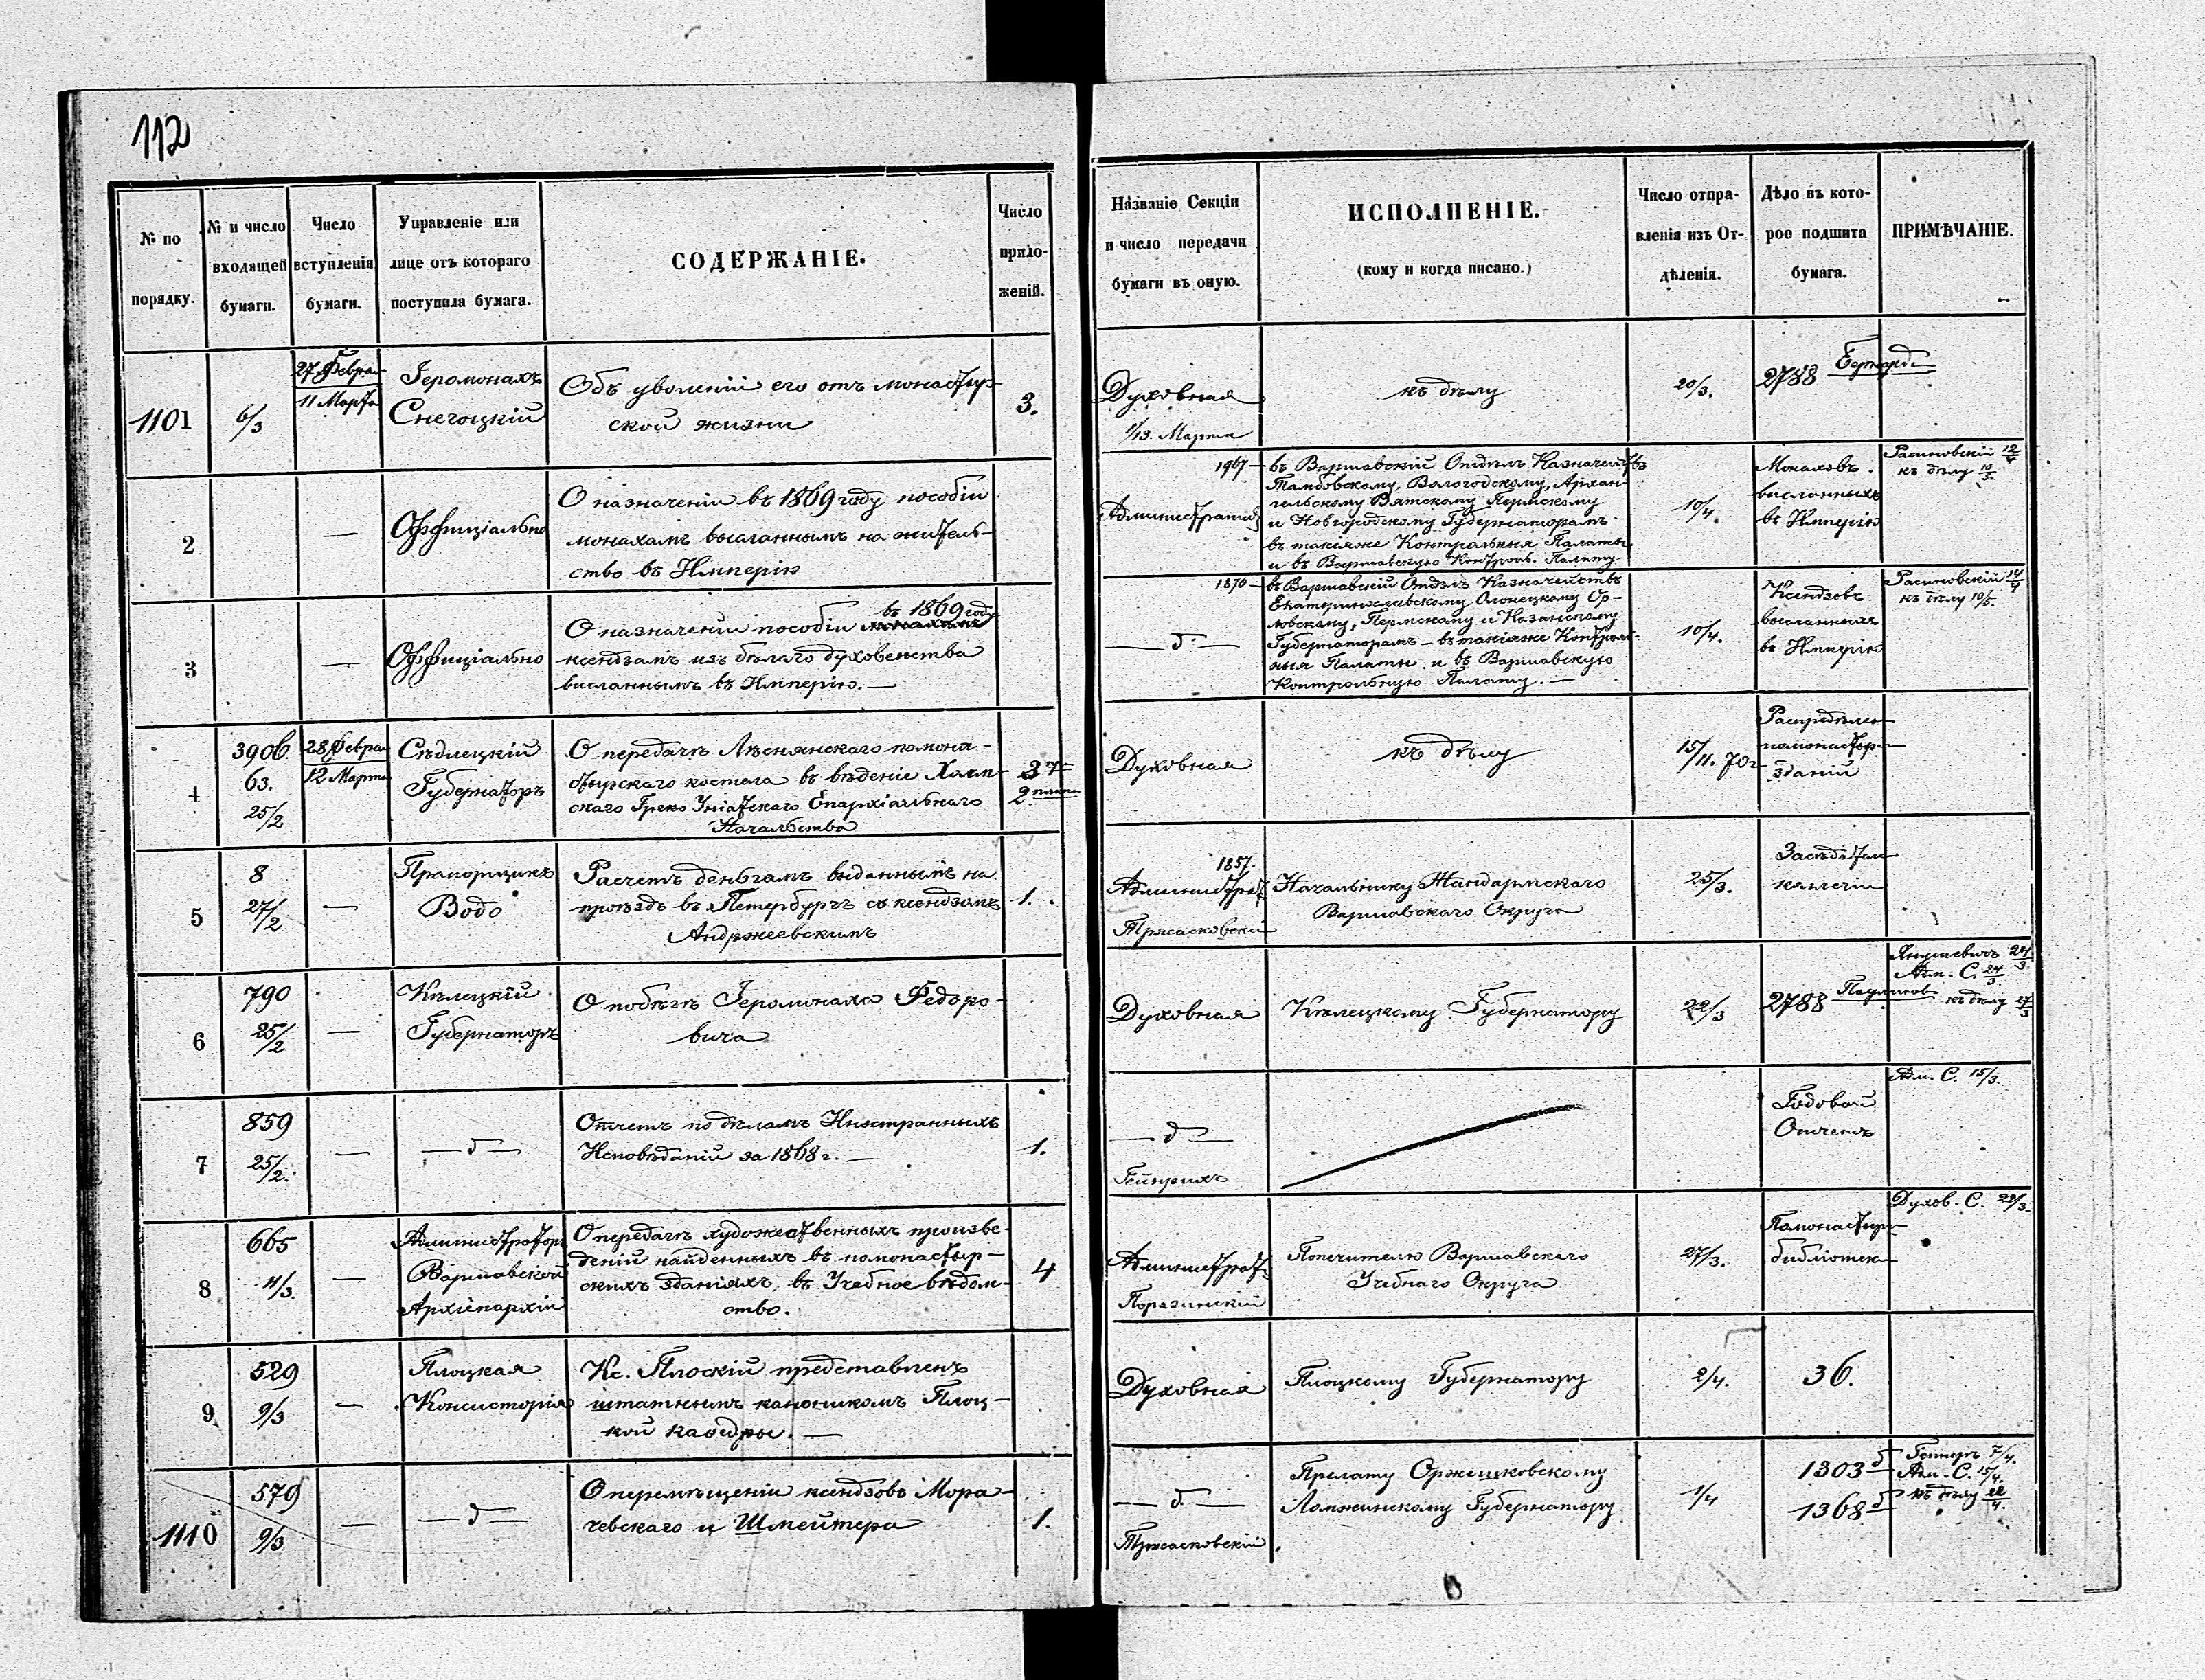 112
№ по порядку.
№ и число входящей бумаги.
Число вступленія бумаги.
Управленіе или лице отъ котораго поступила бумага.
СОДЕРЖАНІЕ.
Число приложеній.
Названіе Секціи и число передачи бумаги въ оную.
ИСПОЛНЕНІЕ.
(кому и когда писано.)
Число отправленія изъ Отдѣленія.
Дѣло въ которое подшита бумага.
ПРИМѢЧАНІЕ.
1101
6/3
27 Феврал
11 Марта
Іеромонахъ
Снегоцкій
Объ уволеніи его отъ монастыр-
ской жизни
3.
Духовная
1/13. Марта
къ дѣлу
20/3.
2788
2
—
Оффиціально
О назначеніи въ 1869 году пособіи
монахамъ высланнымъ на житель-
ство въ Имперію
1967
Администрат
въ Варшавскій Отдѣлъ Казначействъ
Тамбовскому, Вологодскому, Архан-
гельскому Вятскому Пермскому
и Новгородскому Губернаторамъ
въ такіяже Контрольныя Палаты
и въ Варшавскую Контроль. Палату
10/4.
Монаховъ
высланныхъ
въ Имперію
къ дѣлу 10/5.
3
—
Оффиціально
въ 1869 году
О назначеніи пособіи
ксендзамъ изъ бѣлаго духовенства
высланнымъ въ Имперію. —
1870
— д —
въ Варшавскій Отдѣлъ Казначействъ
Екатеринославскому Олонецкому Ор-
ловскому, Пермскому и Казанскому
Губернаторамъ — въ такіяже Контроль-
ныя Палаты и въ Варшавскую
Контрольную Палату. —
10/4.
Ксендзовъ
высланныхъ
въ Имперію
къ дѣлу 10/5.
4
3906.
63.
25/2
28 Феврал
12 Марта
Сѣдлецкій
Губернаторъ
О передачѣ Лѣснянскаго помона-
стырскаго костела въ вѣденіе Холм-
скаго Греко Уніатскаго Епархіальнаго
Начальства
2 плана
Духовная
къ дѣлу
15/11. 70 г
Распредѣлен
помонастыр
зданій
5
8
27/2
—
Прапорщикъ
Водо
Расчетъ деньгамъ выданнымъ на
проѣздъ въ Петербургъ съ ксендзомъ
Андржеевскимъ
1.
1857.
Администрат
Тржасковскій
Начальнику Жандармскаго
Варшавскаго Округа
25/3.
Засѣдатели
коллегіи
6
790
25/2
—
Кѣлецкій
Губернаторъ
О побѣгѣ Іеромонаха Федоро-
вича
Духовная
Кѣлецкому Губернатору
22/3
2788
Янушевичъ 24/3
Адм. С. 24/3
къ дѣлу 27/3
7
859
25/2.
—
— д —
Отчетъ по дѣламъ Иностранныхъ
Исповѣданій за 1868 г. —
1.
— д —
Гейнрихъ
Годовой
Отчетъ
Адм. С. 15/3.
8
665
11/3.
—
Администраторъ
Варшавской
Архіепархіи
О передачѣ художественныхъ произве-
деній найденныхъ въ помонастыр-
скихъ зданіяхъ, въ Учебное вѣдом-
ство.
4
Администрат
Поразинскій
Попечителю Варшавскаго
Учебнаго Округа
27/3.
Помонастыр
библіотек
Духов. С. 22/3.
9
529
9/3
—
Плоцкая
Консисторія
Кс. Плоскій представленъ
штатнымъ каноникомъ Плоц-
кой кафедры. —
Духовная
Плоцкому Губернатору
2/4.
36.
1110
579
9/3
—
— д —
О перемѣщеніи ксендзовъ Мора-
чевскаго и Шмейтера
1.
— д —
Тржасковскій
Прелату Оржешковскому
Ломжинскому Губернатору
1/4
1303 б
1368 б
Адм. С. 15/4.
къ дѣлу 22/4.